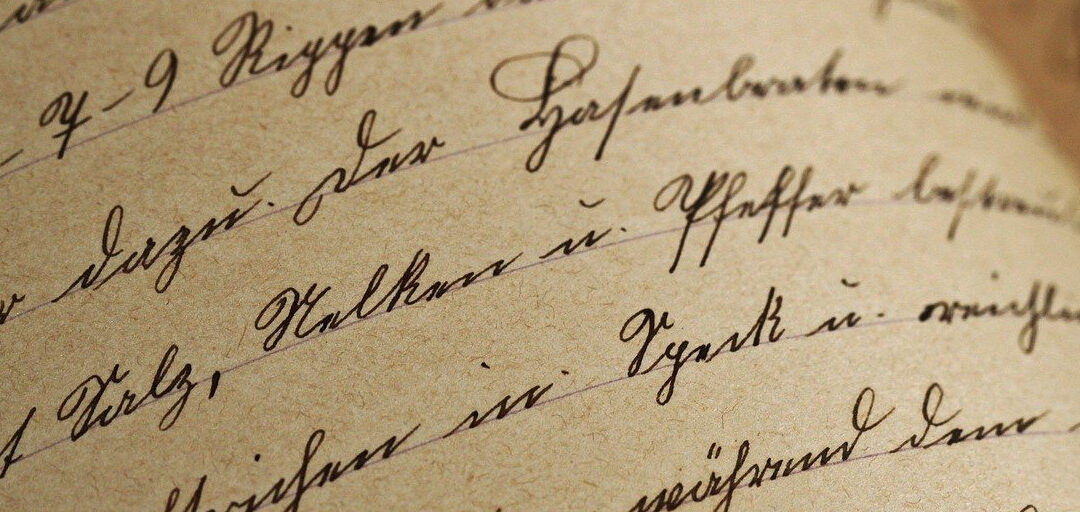 7-9 Rippen
dazu. Der Hasenbraten
Salz, Nelken u. Pfeffer
in Speck u. reichl
während dem